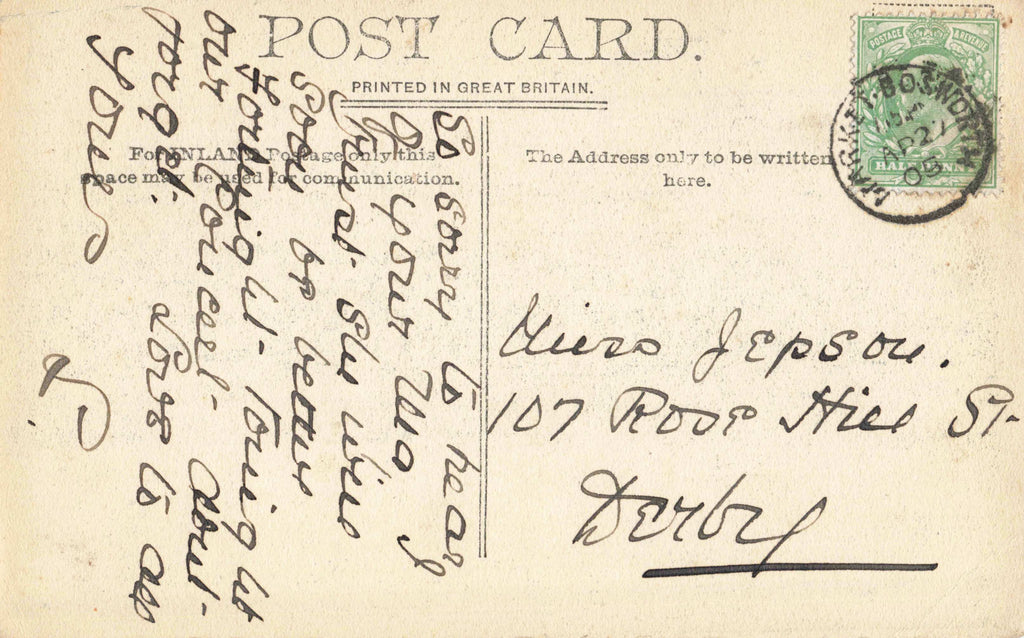 POST CARD.
PRINTED IN GREAT BRITAIN.
For INLAND Postage only this
space may be used for communication.
The Address only to be written
here.
POSTAGE & REVENUE
HALFPENNY
MARKET BOSWORTH
AP 27
08
So sorry to hear
of your Ma
trust she will
soon be better
Fortnight-Tonight
our concert- dont-
forget. Love to all
Yours
Miss Jepson.
107 Rose Hill St-
Derby